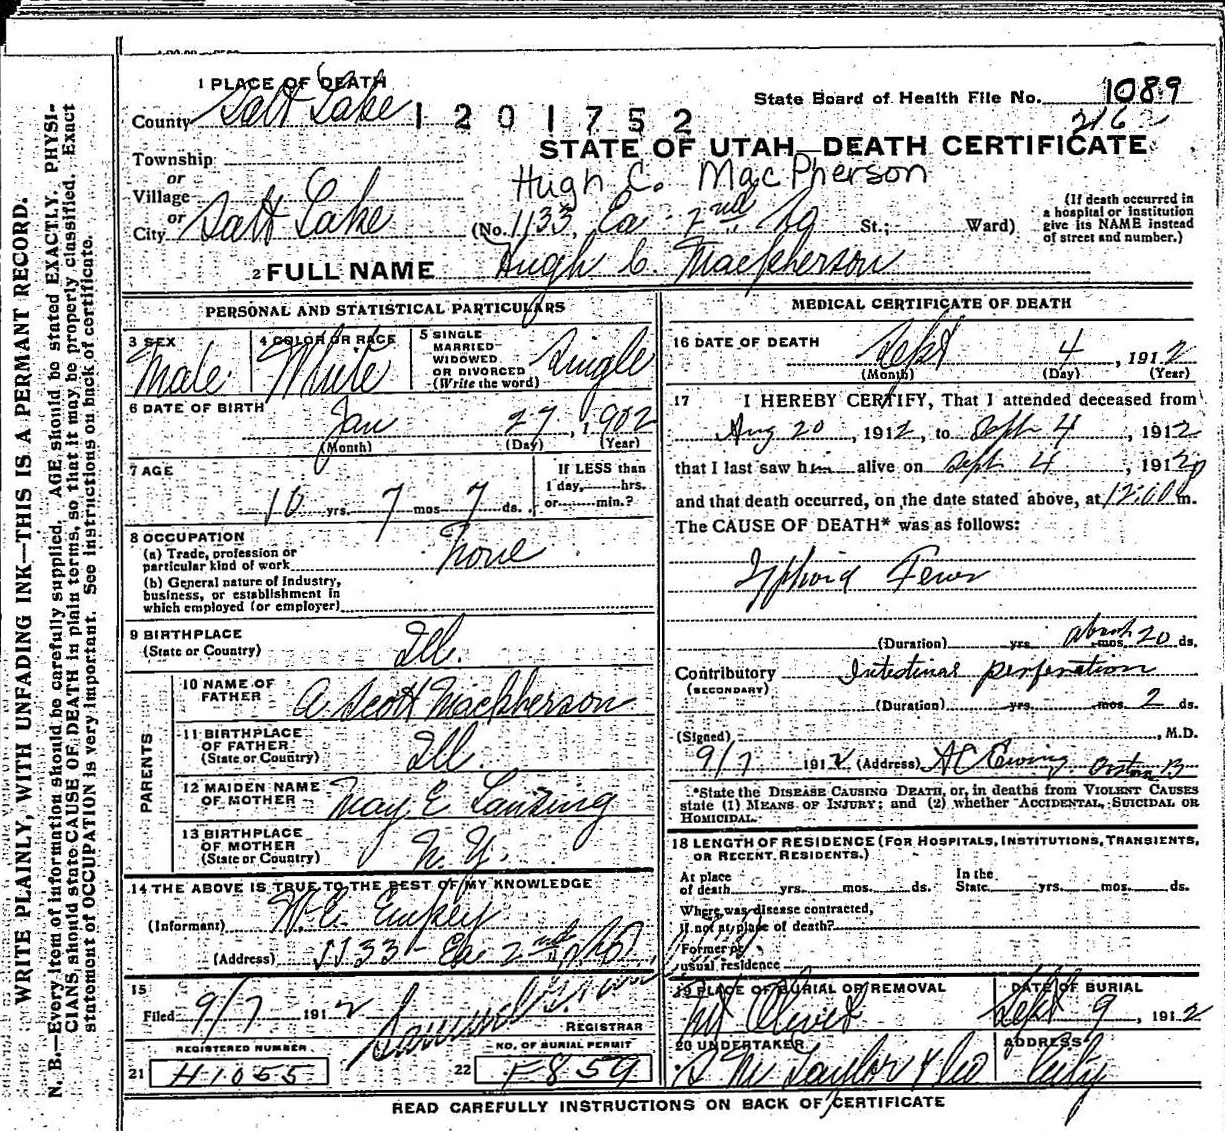 WRITE PLAINLY, WITH UNFADING INK—THIS IS A PERMANT RECORD.
N. B.—Every item of information should be carefully supplied. AGE should be stated EXACTLY. PHYSI-
CIANS should state CAUSE OF DEATH in plain terms, so that it may be properly classified. Exact
statement of OCCUPATION is very important. See instructions on back of certificate.
1 PLACE OF DEATH
County Salt Lake 1201752
State Board of Health File No. 1089
2162
STATE OF UTAH—DEATH CERTIFICATE
Township
or
Village
or
City Salt Lake
Hugh C. MacPherson
(No. 1133, Ea 2nd So St.; Ward)
(If death occurred in
a hospital or institution
give its NAME instead
of street and number.)
2 FULL NAME Hugh C. Macpherson
PERSONAL AND STATISTICAL PARTICULARS
3 SEX Male
4 COLOR OR RACE White
5 SINGLE
MARRIED
WIDOWED
OR DIVORCED
(Write the word) Single
6 DATE OF BIRTH
Jan 27, 1902
(Month) (Day) (Year)
7 AGE
10 yrs. 7 mos 7 ds.
If LESS than
1 day, hrs.
or min.?
8 OCCUPATION
(a) Trade, profession or
particular kind of work None
(b) General nature of Industry,
business, or establishment in
which employed (or employer)
9 BIRTHPLACE
(State or Country) Ill.
PARENTS
10 NAME OF
FATHER A. Scott Macpherson
11 BIRTHPLACE
OF FATHER
(State or Country) Ill.
12 MAIDEN NAME
OF MOTHER May E Lansing
13 BIRTHPLACE
OF MOTHER
(State or Country) N. Y.
14 THE ABOVE IS TRUE TO THE BEST OF MY KNOWLEDGE
(Informant)
(Address) 1133 - Ea 2nd So
15
Filed 9/7 1912
REGISTRAR
REGISTERED NUMBER
21 H1055
NO. OF BURIAL PERMIT
22 F859
MEDICAL CERTIFICATE OF DEATH
16 DATE OF DEATH
Sept 4, 1912
(Month) (Day) (Year)
17 I HEREBY CERTIFY, That I attended deceased from
Aug 20, 1912, to Sept 4, 1912
that I last saw him alive on Sept 4, 1912
and that death occurred, on the date stated above, at 12:00 m.
The CAUSE OF DEATH* was as follows:
Typhoid Fever
(Duration) yrs. mos. about 20 ds.
Contributory Intestinal perforation
(SECONDARY)
(Duration) yrs. mos. 2 ds.
(Signed) , M.D.
9/7 1912 (Address) A C Ewing
*State the DISEASE CAUSING DEATH, or, in deaths from VIOLENT CAUSES
state (1) MEANS OF INJURY; and (2) whether ACCIDENTAL, SUICIDAL OR
HOMICIDAL.
18 LENGTH OF RESIDENCE (FOR HOSPITALS, INSTITUTIONS, TRANSIENTS,
OR RECENT RESIDENTS.)
At place
of death yrs. mos. ds.
In the
State yrs. mos. ds.
Where was disease contracted,
if not at place of death?
Former or
usual residence
19 PLACE OF BURIAL OR REMOVAL
Mt Olivet
DATE OF BURIAL
Sept 9, 1912
20 UNDERTAKER
S M Taylor & Co
ADDRESS
City
READ CAREFULLY INSTRUCTIONS ON BACK OF CERTIFICATE